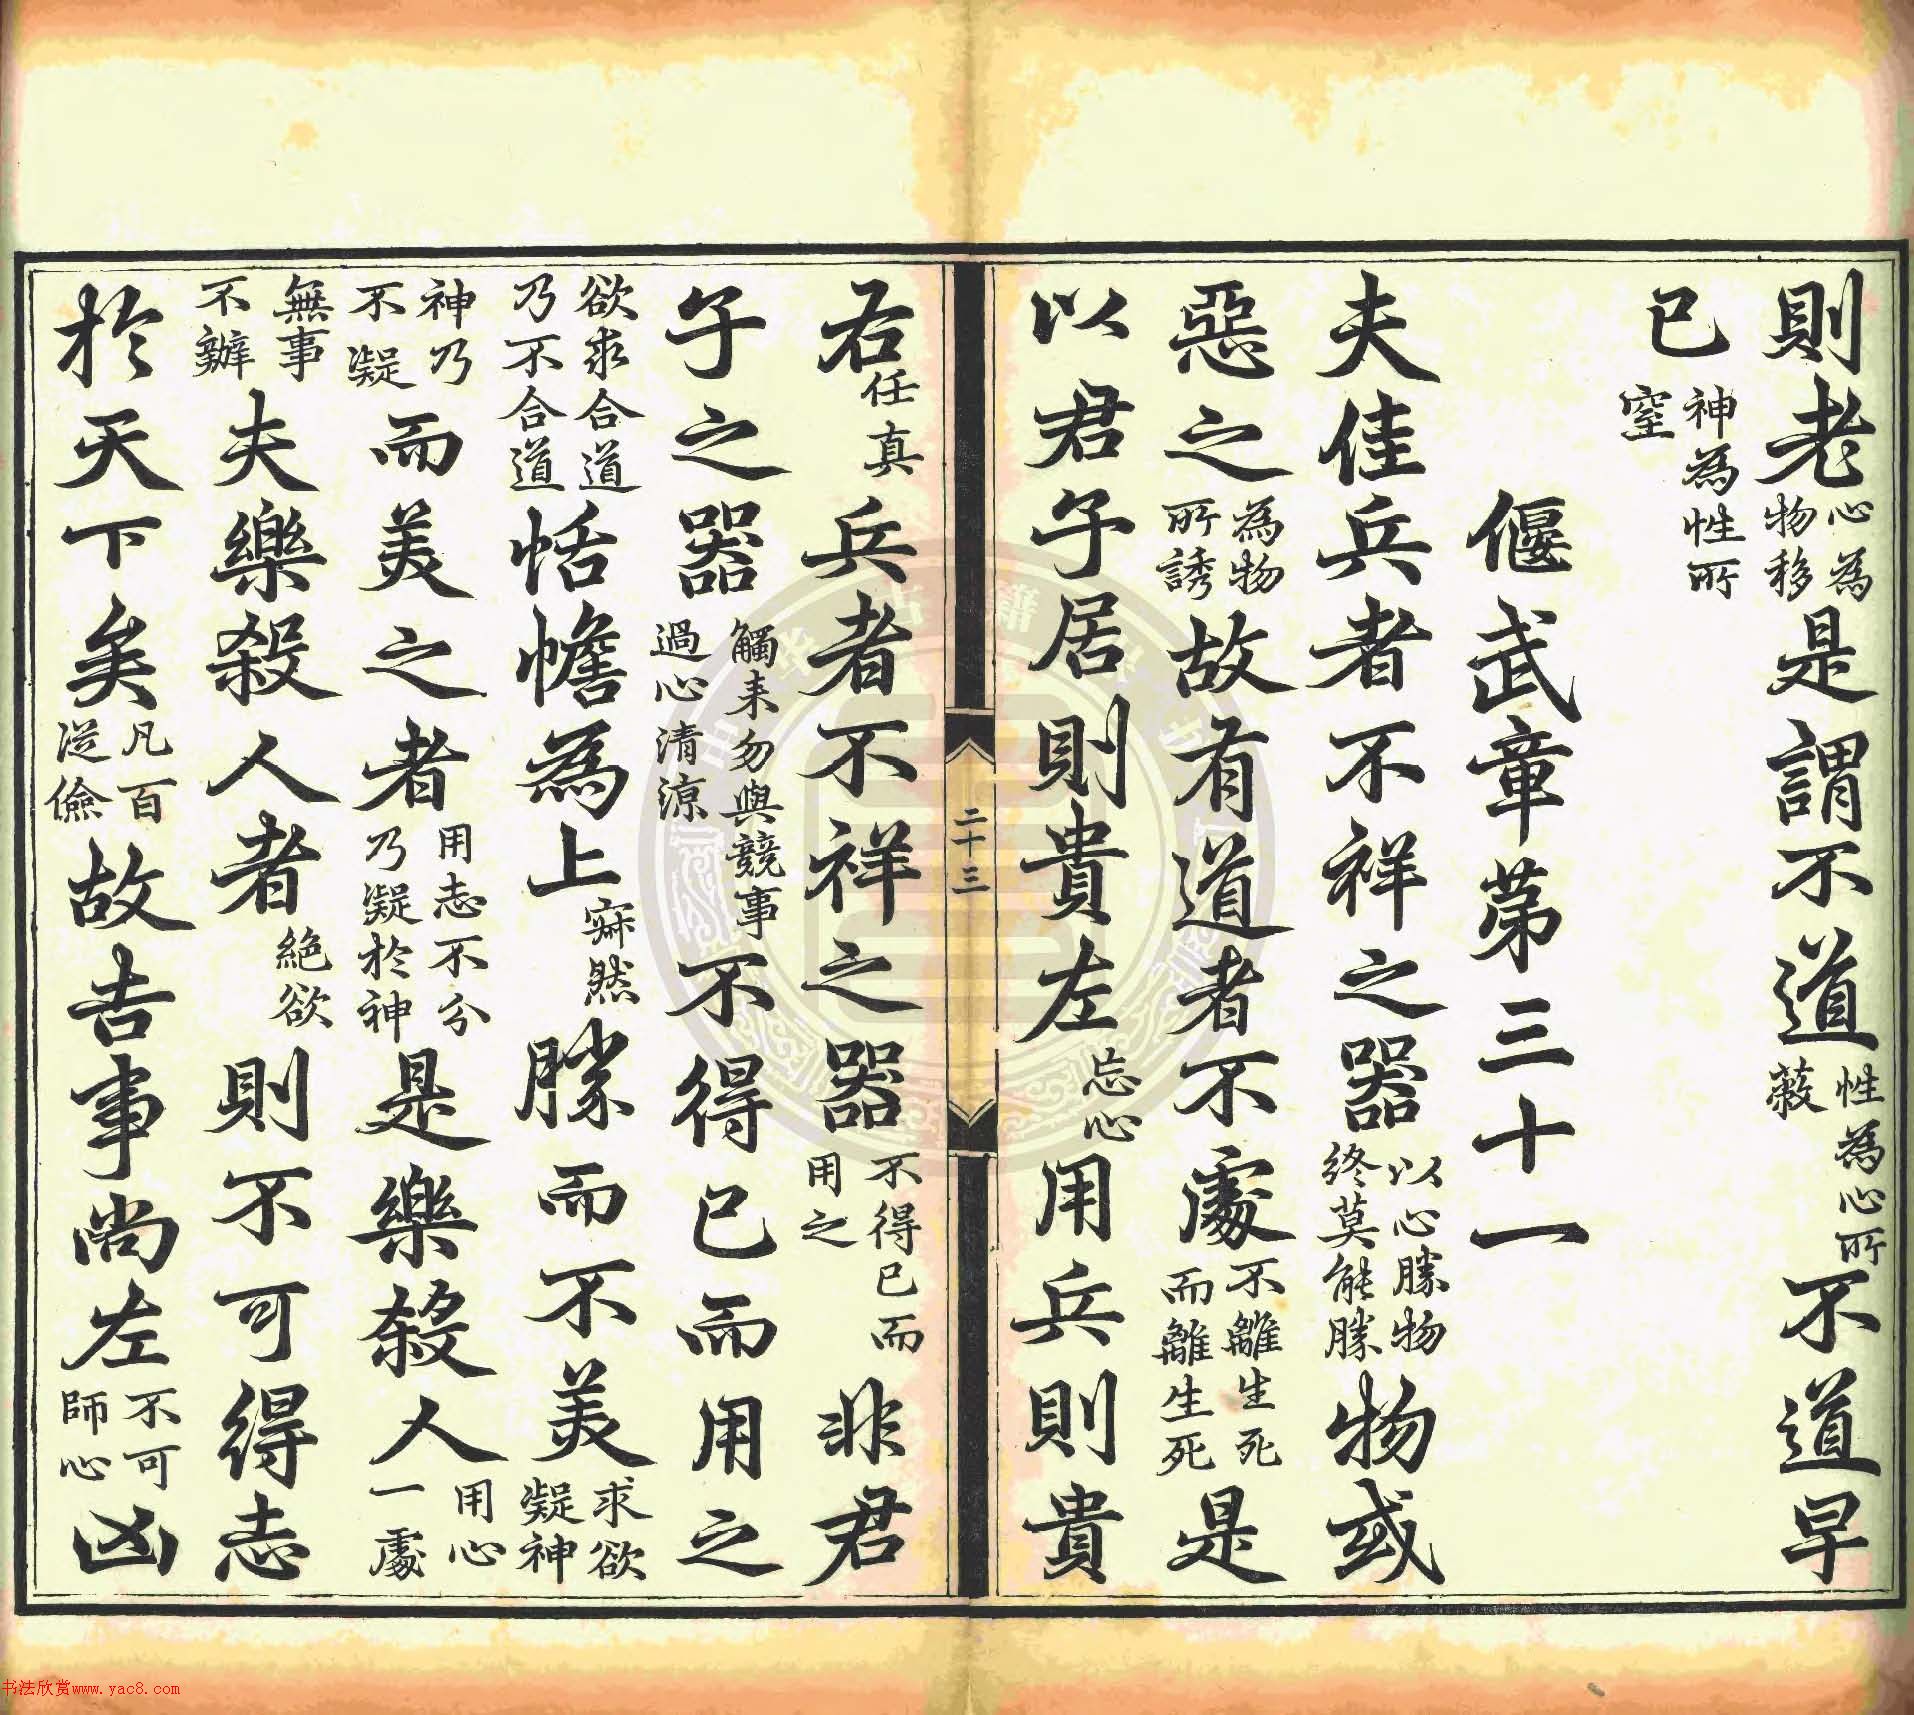 則老心為物移是謂不道性為心所蔽不道早
已神為性所窒
偃武章第三十一
夫佳兵者不祥之器以心勝物終莫能勝物或
惡之為物所誘故有道者不處不離生死而離生死是
以君子居則貴左忘心用兵則貴
二十三
右任真兵者不祥之器不得已而用之非君
子之器觸来勿與競事過心清涼不得已而用之
欲求合道乃不合道恬憺為上寂然勝而不美求欲凝神
神乃不凝而美之者用志不分乃凝於神是樂殺人用心一處
無事不辦夫樂殺人者絶欲則不可得志
於天下矣凡百從儉故吉事尚左不可師心凶
书法欣赏www.yac8.com